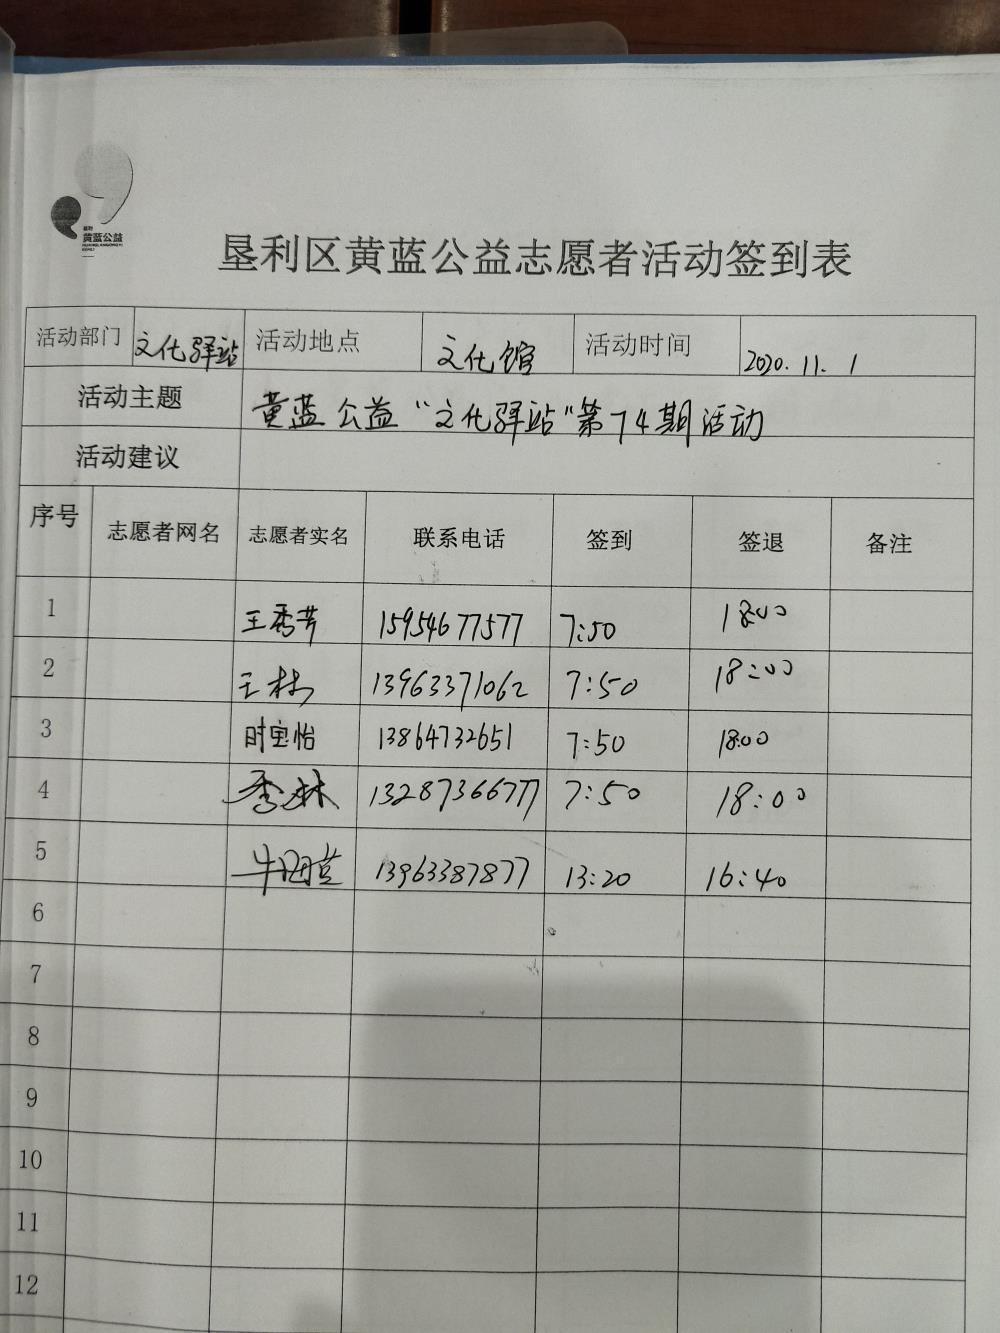 黄蓝公益
垦利区黄蓝公益志愿者活动签到表
活动部门 文化驿站 活动地点 文化馆 活动时间 2020.11.1
活动主题 黄蓝公益“文化驿站”第74期活动
活动建议
序号 志愿者网名 志愿者实名 联系电话 签到 签退 备注
1 王秀芳 15954677577 7:50 18:00
2 王林 13963371062 7:50 18:00
3 时宝怡 13864732651 7:50 18:00
4 李林 13287366777 7:50 18:00
5 牛海英 13963387877 13:20 16:40
6
7
8
9
10
11
12